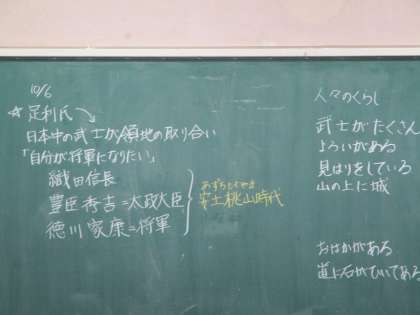 10/6
☆足利氏
日本中の武士が領地の取り合い
「自分が将軍になりたい」
織田信長
豊臣秀吉=太政大臣
徳川家康=将軍
あずちももやま
安土桃山時代
人々のくらし
武士がたくさん
よろいがある
見はりをしている
山の上に城
おはかがある
道に石がひいてある